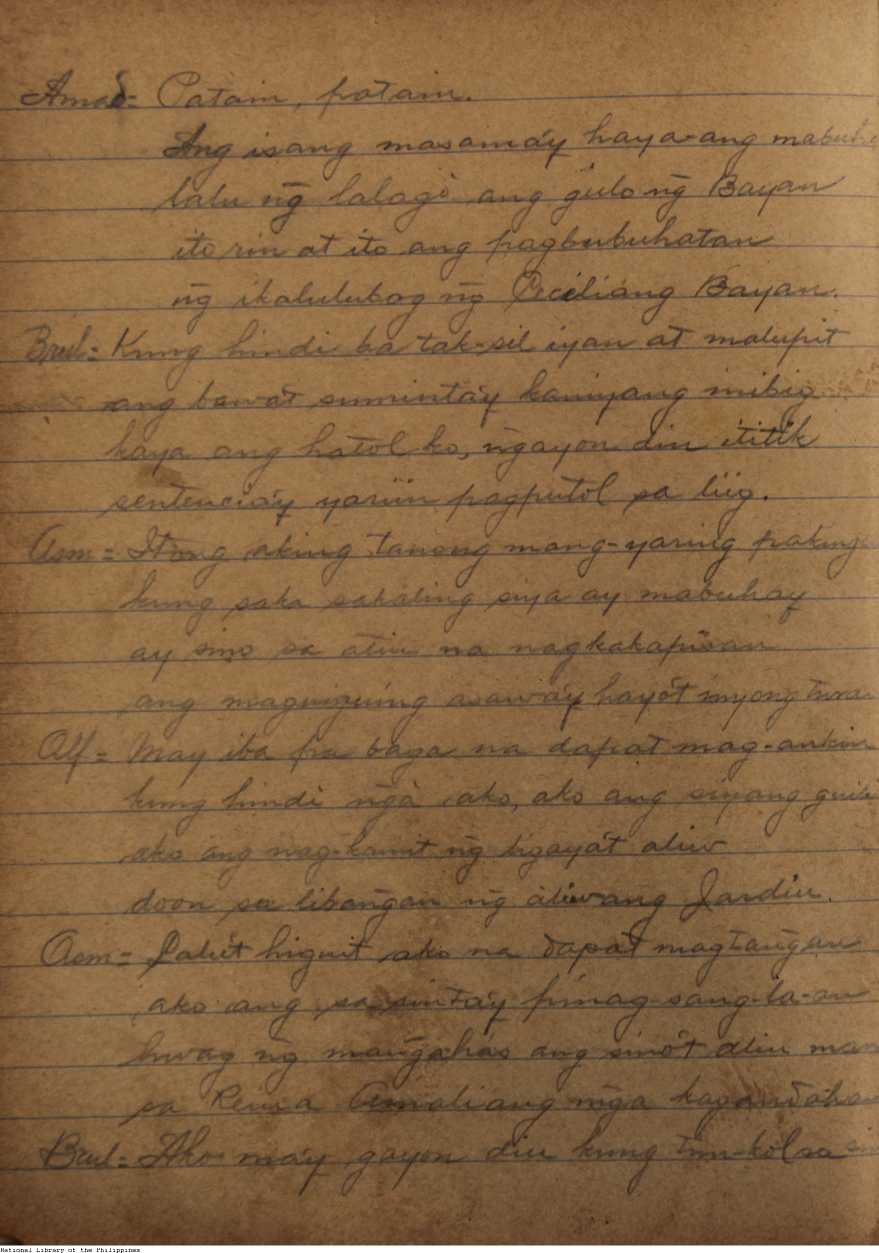 Amad= Patain, patain.
Ang isang masama'y haya-ang mabuha
lalu ng lalago ang gulo ng Bayan
ito rin at ito ang pagbubuhatan
ng ikalulubog ng Ceciliang Bayan.
Brul= Kung hindi ba tak-sil iyan at malupit
ang bawa't suminta'y kaniyang inibig
kaya ang hatol ko, ngayon din ititik
sentencia'y yariin pagputol sa liig.
Asm= Itong aking tanong mang-yaring paking
kung saka sakaling siya ay mabuhay
ay sino sa atin na nagkakapisan
ang maguiguing asawa'y haya't inyong turan
Alf= May iba pa baga na dapat mag-ankin
kung hindi nga ako, ako ang siyang
ako ang nag-kamit ng ligaya't aliw
doon sa libangan ng aliwang Jardin.
Asm= Lalu't higuit ako na dapat magtangan
ako ang sa sinta'y pinag-sang-la-an
hwag ng mangahas ang sino't alin man
sa Reina Asmaliang mga kagandahan
Brul= Ako may gayon din kung tun-kol sa
National Library of the Philippines